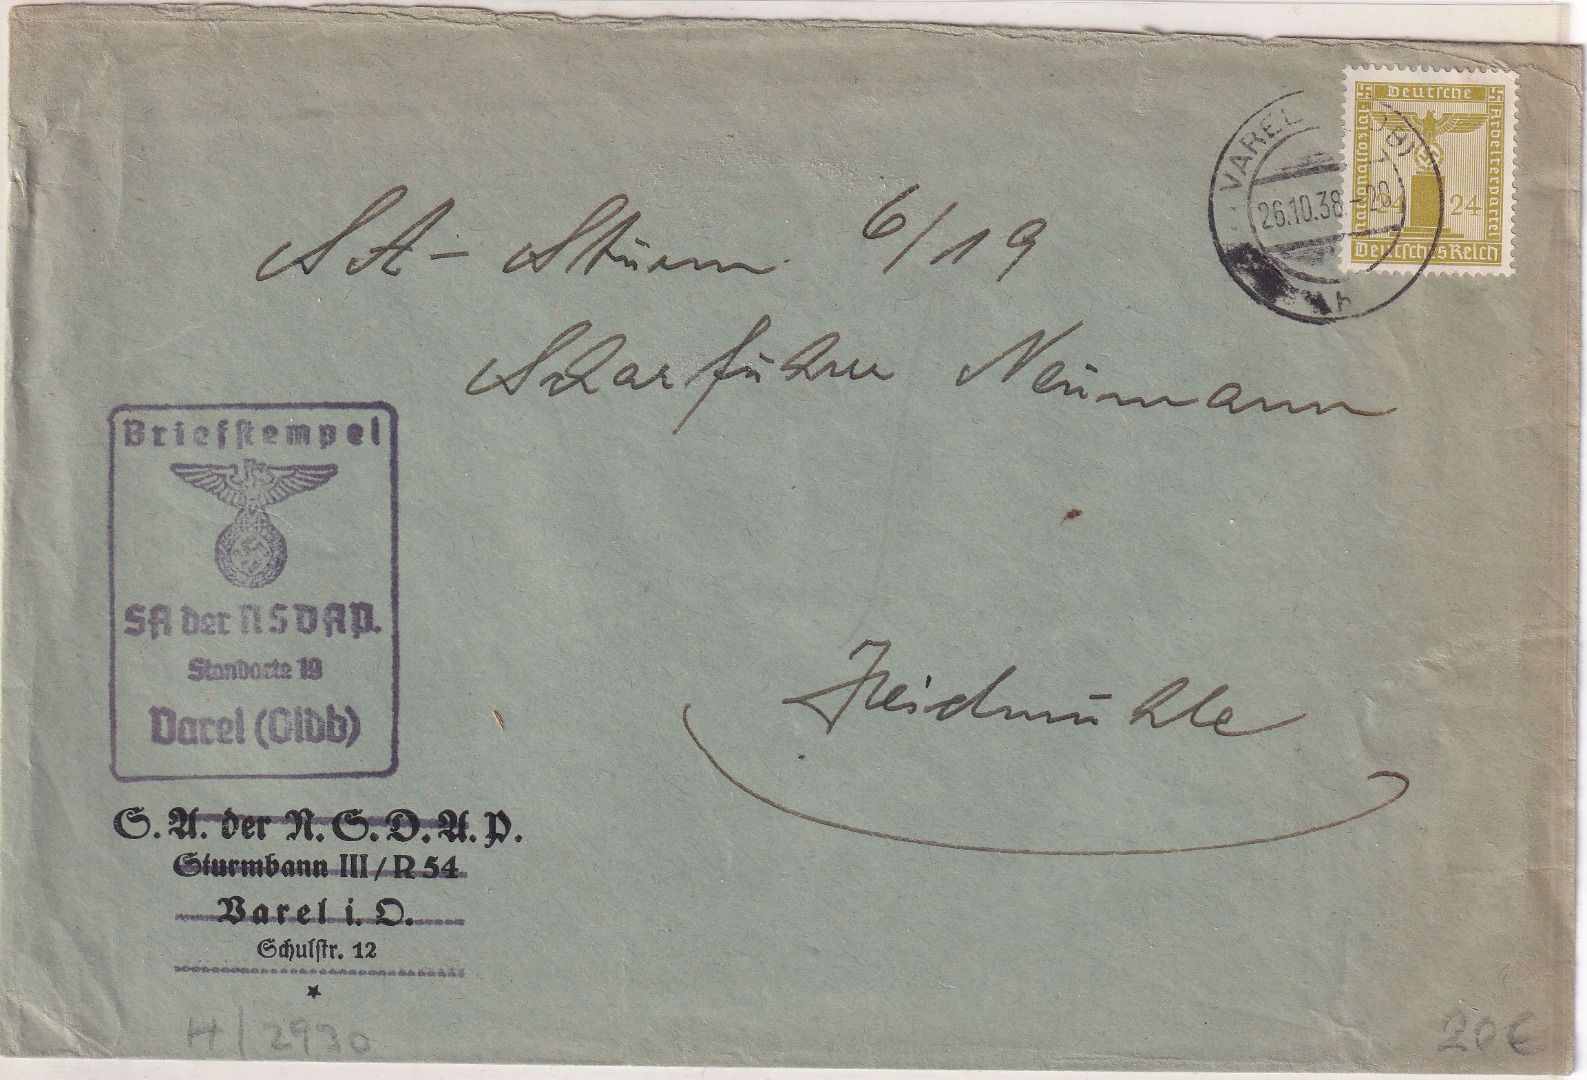 Deutsche
Nationalsozial.
Arbeiterpartei
24 24
Deutsches Reich
VAREL
26.10.38.-20
SA-Sturm 6/19
Scharführer Neumann
Heidmühle
Briefstempel
SA der NSDAP.
Standarte 19
Varel (Oldb)
S.A. der N.S.D.A.P.
Sturmbann III/R 54
Varel i. O.
Schulstr. 12
H/2930
20€